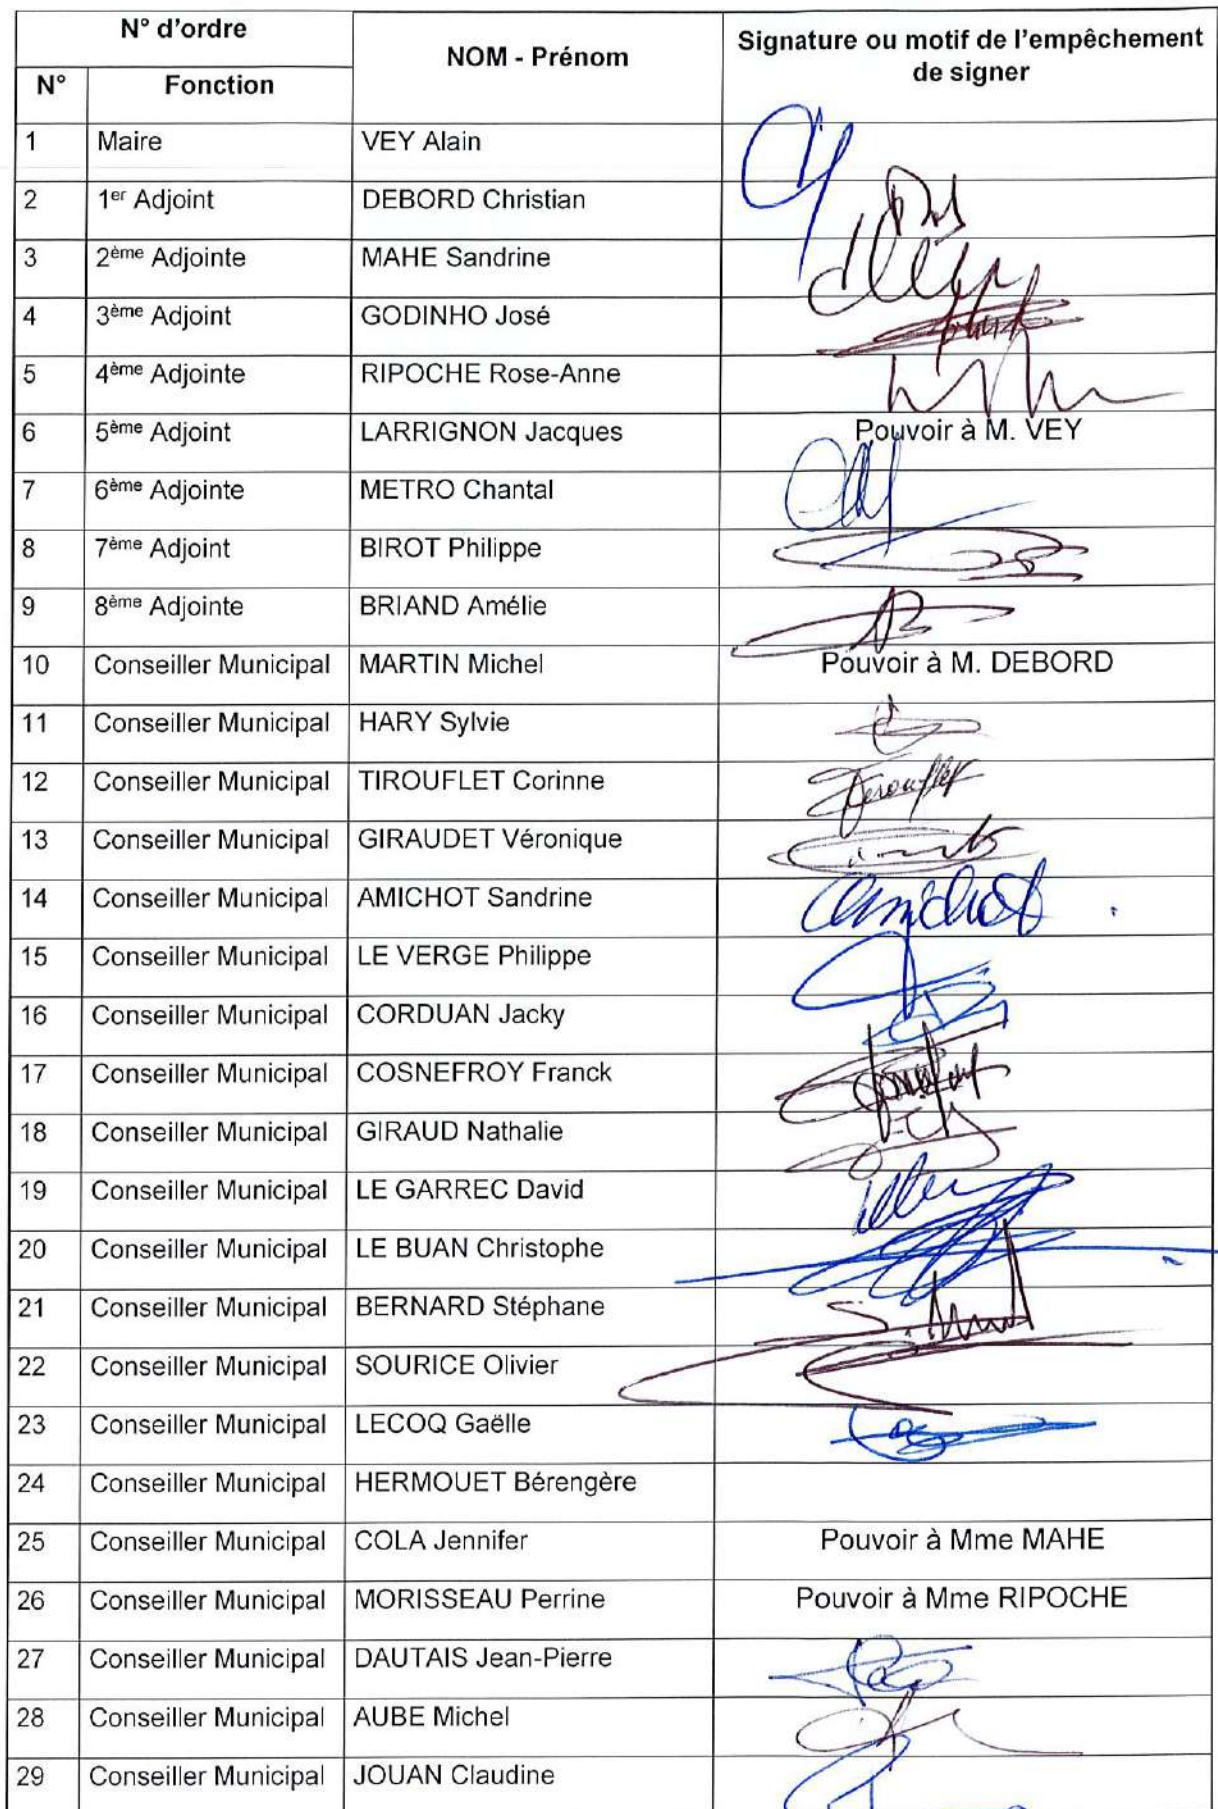 N° d'ordre
NOM - Prénom
Signature ou motif de l'empêchement
de signer
N° Fonction
1 Maire VEY Alain
2 1er Adjoint DEBORD Christian
3 2ème Adjointe MAHE Sandrine
4 3ème Adjoint GODINHO José
5 4ème Adjointe RIPOCHE Rose-Anne
6 5ème Adjoint LARRIGNON Jacques Pouvoir à M. VEY
7 6ème Adjointe METRO Chantal
8 7ème Adjoint BIROT Philippe
9 8ème Adjointe BRIAND Amélie
10 Conseiller Municipal MARTIN Michel Pouvoir à M. DEBORD
11 Conseiller Municipal HARY Sylvie
12 Conseiller Municipal TIROUFLET Corinne
13 Conseiller Municipal GIRAUDET Véronique
14 Conseiller Municipal AMICHOT Sandrine Amichot
15 Conseiller Municipal LE VERGE Philippe
16 Conseiller Municipal CORDUAN Jacky
17 Conseiller Municipal COSNEFROY Franck
18 Conseiller Municipal GIRAUD Nathalie
19 Conseiller Municipal LE GARREC David
20 Conseiller Municipal LE BUAN Christophe
21 Conseiller Municipal BERNARD Stéphane
22 Conseiller Municipal SOURICE Olivier
23 Conseiller Municipal LECOQ Gaëlle
24 Conseiller Municipal HERMOUET Bérengère
25 Conseiller Municipal COLA Jennifer Pouvoir à Mme MAHE
26 Conseiller Municipal MORISSEAU Perrine Pouvoir à Mme RIPOCHE
27 Conseiller Municipal DAUTAIS Jean-Pierre
28 Conseiller Municipal AUBE Michel
29 Conseiller Municipal JOUAN Claudine